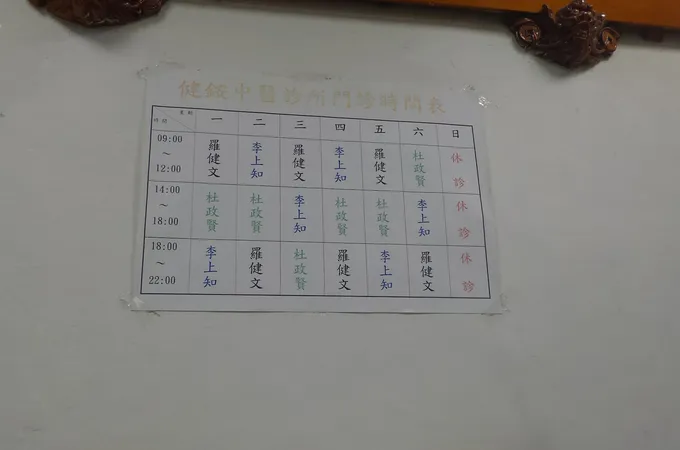 健鋐中醫診所門診時間表
星期 時間 一 二 三 四 五 六 日
09:00～12:00 羅健文 李上知 羅健文 李上知 羅健文 杜政賢 休診
14:00～18:00 杜政賢 杜政賢 李上知 杜政賢 杜政賢 李上知 休診
18:00～22:00 李上知 羅健文 杜政賢 羅健文 李上知 羅健文 休診